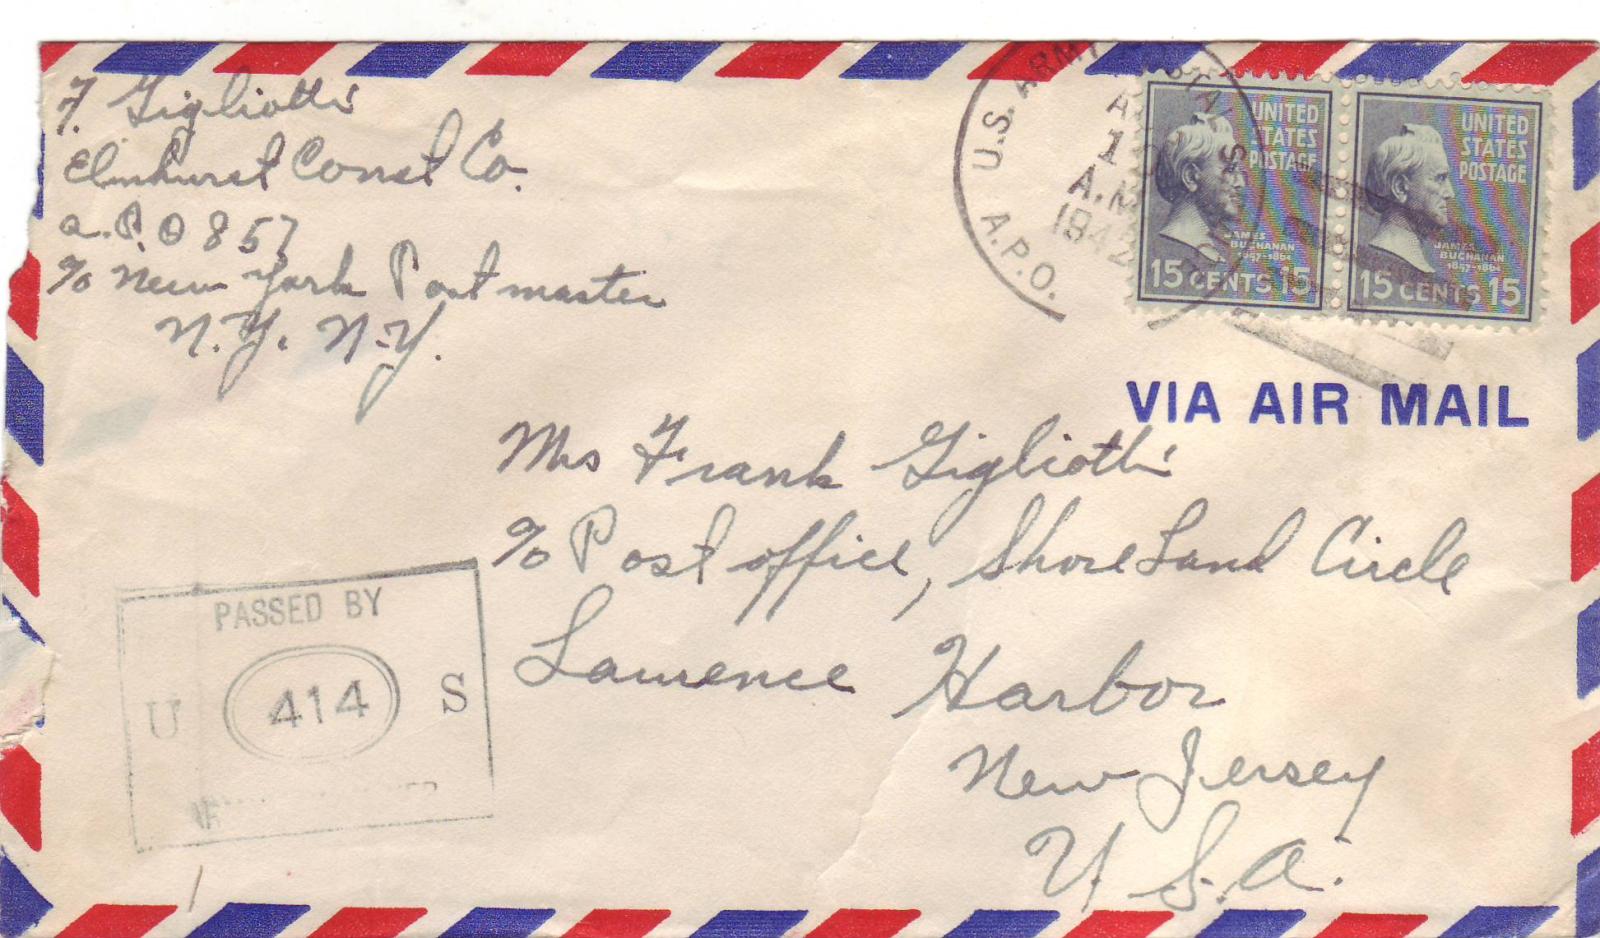 F. Gigliotti
Elmhurst Const Co.
A.P.O 857
c/o New York Postmaster
N.Y. N.Y.
U.S. ARMY POSTAL
A.P.O.
1
A.M
1942
UNITED
STATES
POSTAGE
JAMES
BUCHANAN
1857-1861
15 CENTS 15
UNITED
STATES
POSTAGE
JAMES
BUCHANAN
1857-1861
15 CENTS 15
VIA AIR MAIL
Mrs Frank Gigliotti
c/o Post office, Shore Land Circle
Laurence Harbor
New Jersey
U.S.A.
PASSED BY
U 414 S